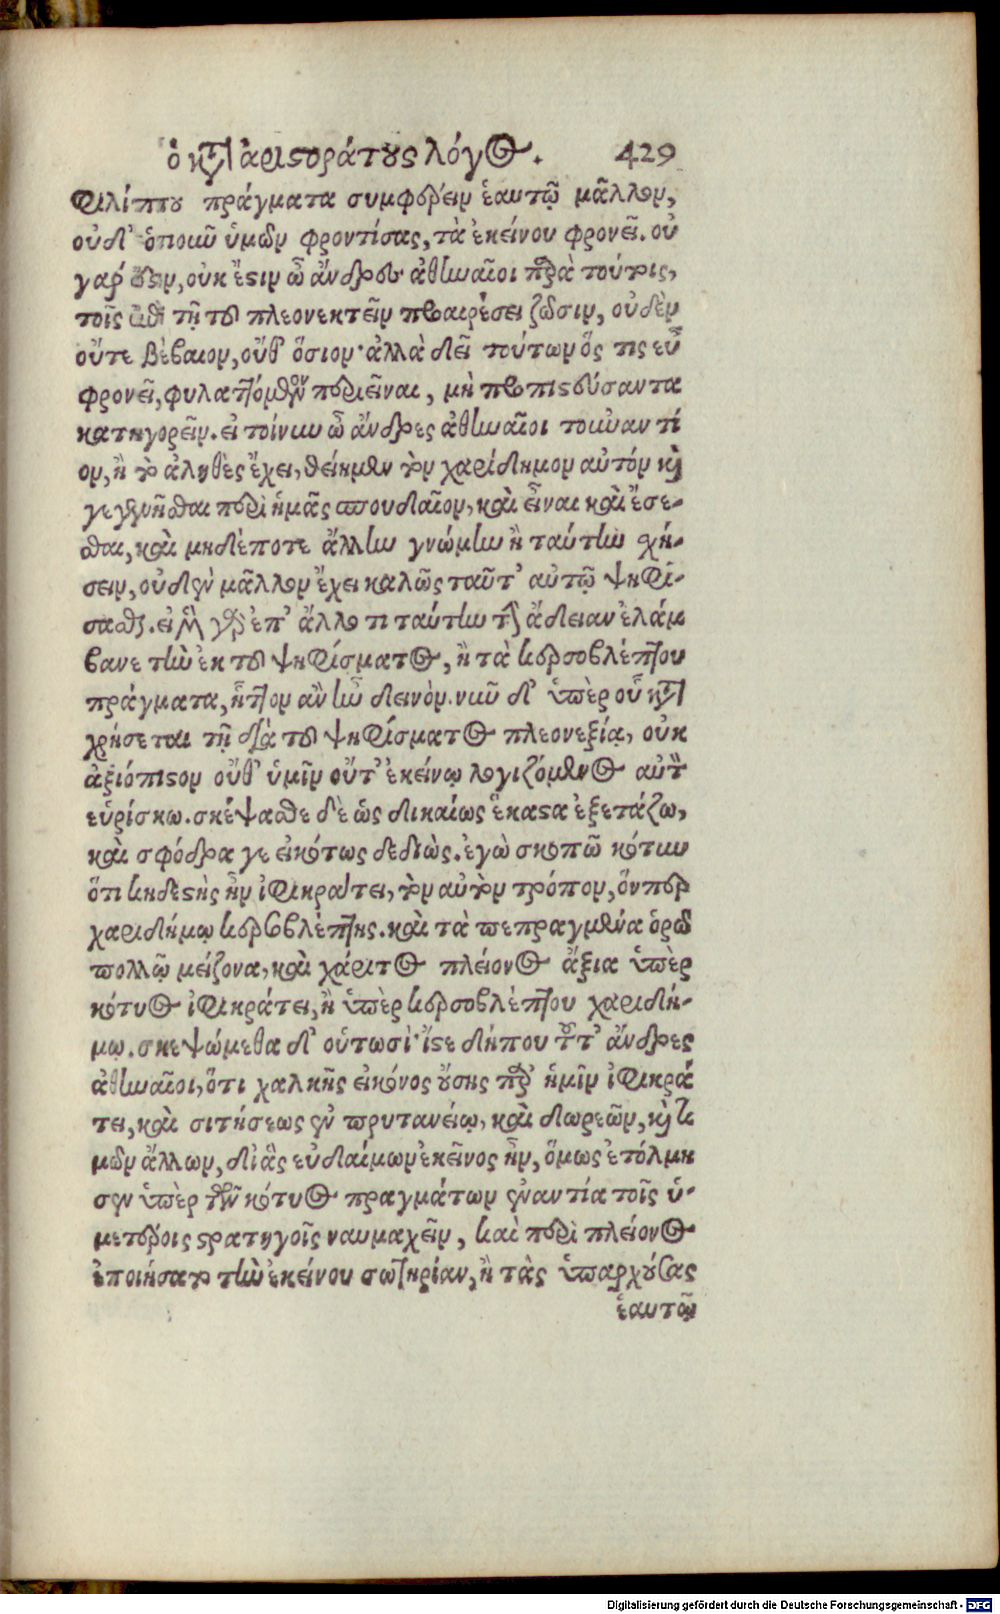 ὁ κατὰ ἀριστοκράτους λόγος. 429
φιλίππου πράγματα συμφέρειν ἑαυτῷ μᾶλλον,
οὐδ' ὁποιοῦν ὑμῶν φροντίσας, τὰ ἐκείνου φρονεῖ. οὐ
γάρ ἐστιν, οὐκ ἔστιν ὦ ἄνδρες ἀθηναῖοι παρὰ τούτοις,
τοῖς ἐπὶ τῇ τοῦ πλεονεκτεῖν προαιρέσει ζῶσιν, οὐδὲν
οὔτε βέβαιον, οὔθ' ὅσιον· ἀλλὰ δεῖ τούτων ὅς τις εὖ
φρονεῖ, φυλαττόμενον περιεῖναι, μὴ προπιστεύσαντα
κατηγορεῖν. εἰ τοίνυν ὦ ἄνδρες ἀθηναῖοι τοὐναντί
ον, ἢ τὸ ἀληθὲς ἔχει, θείημεν τὸν χαρίδημον αὐτόν καὶ
γεγενῆσθαι περὶ ἡμᾶς σπουδαῖον, καὶ εἶναι καὶ ἔσε-
σθαι, καὶ μηδέποτε ἄλλην γνώμην ἢ ταύτην σχή-
σειν, οὐδὲν μᾶλλον ἔχει καλῶς ταῦτ' αὐτῷ ψηφί-
σασθαι. εἰ μὲν γὰρ ἐπ' ἄλλο τι ταύτην τὴν ἄδειαν ἐλάμ
βανε τὴν ἐκ τοῦ ψηφίσματος, ἢ τὰ κερσοβλέπτου
πράγματα, ἧττον ἂν ἦν δεινὸν. νῦν δ' ὑπὲρ οὗ κατα
χρήσεται τῇ διὰ τοῦ ψηφίσματος πλεονεξίᾳ, οὐκ
ἀξιόπιστον οὔθ' ὑμῖν οὔτ' ἐκείνῳ λογιζόμενος αὐτὸν
εὑρίσκω. σκέψασθε δὲ ὡς δικαίως ἕκαστα ἐξετάζω,
καὶ σφόδρα γε εἰκότως δεδιὼς. ἐγὼ σκοπῶ κότυν
ὅτι κηδεστὴς ἦν ἰφικράτει, τὸν αὐτὸν τρόπον, ὅνπερ
χαριδήμῳ κερσοβλέπτης. καὶ τὰ πεπραγμένα ὁρῶ
πολλῷ μείζονα, καὶ χάριτος πλείονος ἄξια ὑπὲρ
κότυος ἰφικράτει, ἢ ὑπὲρ κερσοβλέπτου χαριδή-
μῳ. σκεψώμεθα δ' οὑτωσὶ· ἴστε δήπου τοῦτ' ἄνδρες
ἀθηναῖοι, ὅτι χαλκῆς εἰκόνος οὔσης παρ' ἡμῖν ἰφικρά
τει, καὶ σιτήσεως ἐν πρυτανείῳ, καὶ δωρεῶν, καὶ τι
μῶν ἄλλων, δι' ἃς εὐδαίμων ἐκεῖνος ἦν, ὅμως ἐτόλμη
σεν ὑπὲρ τῶν κότυος πραγμάτων ἐναντία τοῖς ὑ-
μετέροις στρατηγοῖς ναυμαχεῖν, καὶ περὶ πλείονος
ἐποιήσατο τὴν ἐκείνου σωτηρίαν, ἢ τὰς ὑπαρχούσας
ἑαυτῷ
Digitalisierung gefördert durch die Deutsche Forschungsgemeinschaft - DFG